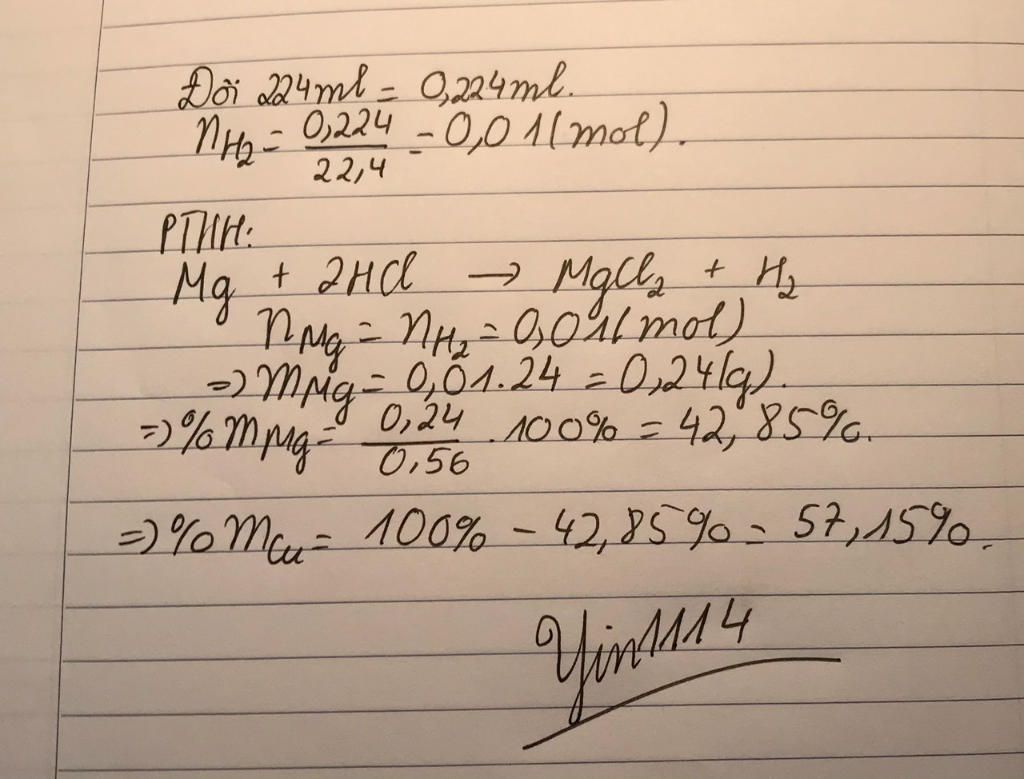 Đổi 224ml = 0,224ml.
nH₂ = 0,224/22,4 = 0,01(mol).
PTHH:
Mg + 2HCl → MgCl₂ + H₂
nMg = nH₂ = 0,01(mol)
=> mMg = 0,01.24 = 0,24(g).
=> %mMg = 0,24/0,56 .100% = 42,85%.
=> %mCu = 100% - 42,85% = 57,15%.
Yin1114